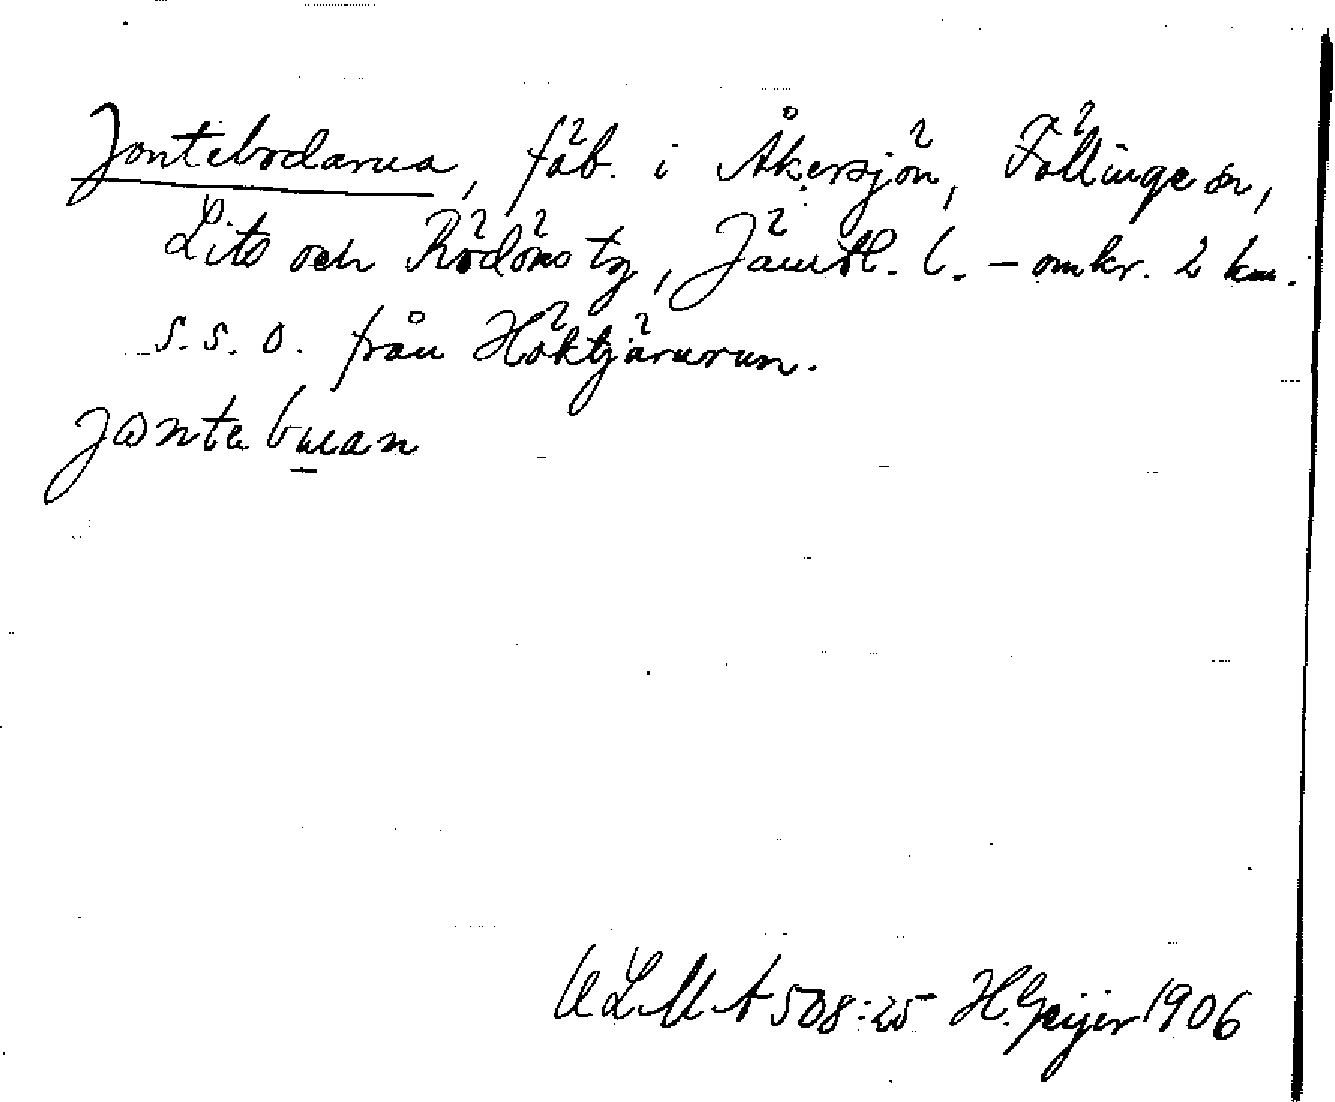 Jontebodarna, fäb. i Åkersjön, Föllinge sn,
Lits och Rödöns tg, Jämtl. l. – omkr. 2 km.
s.s.o. från Höktjärnrun.
jonte buan
ULMA 508:25 H. Geijer 1906